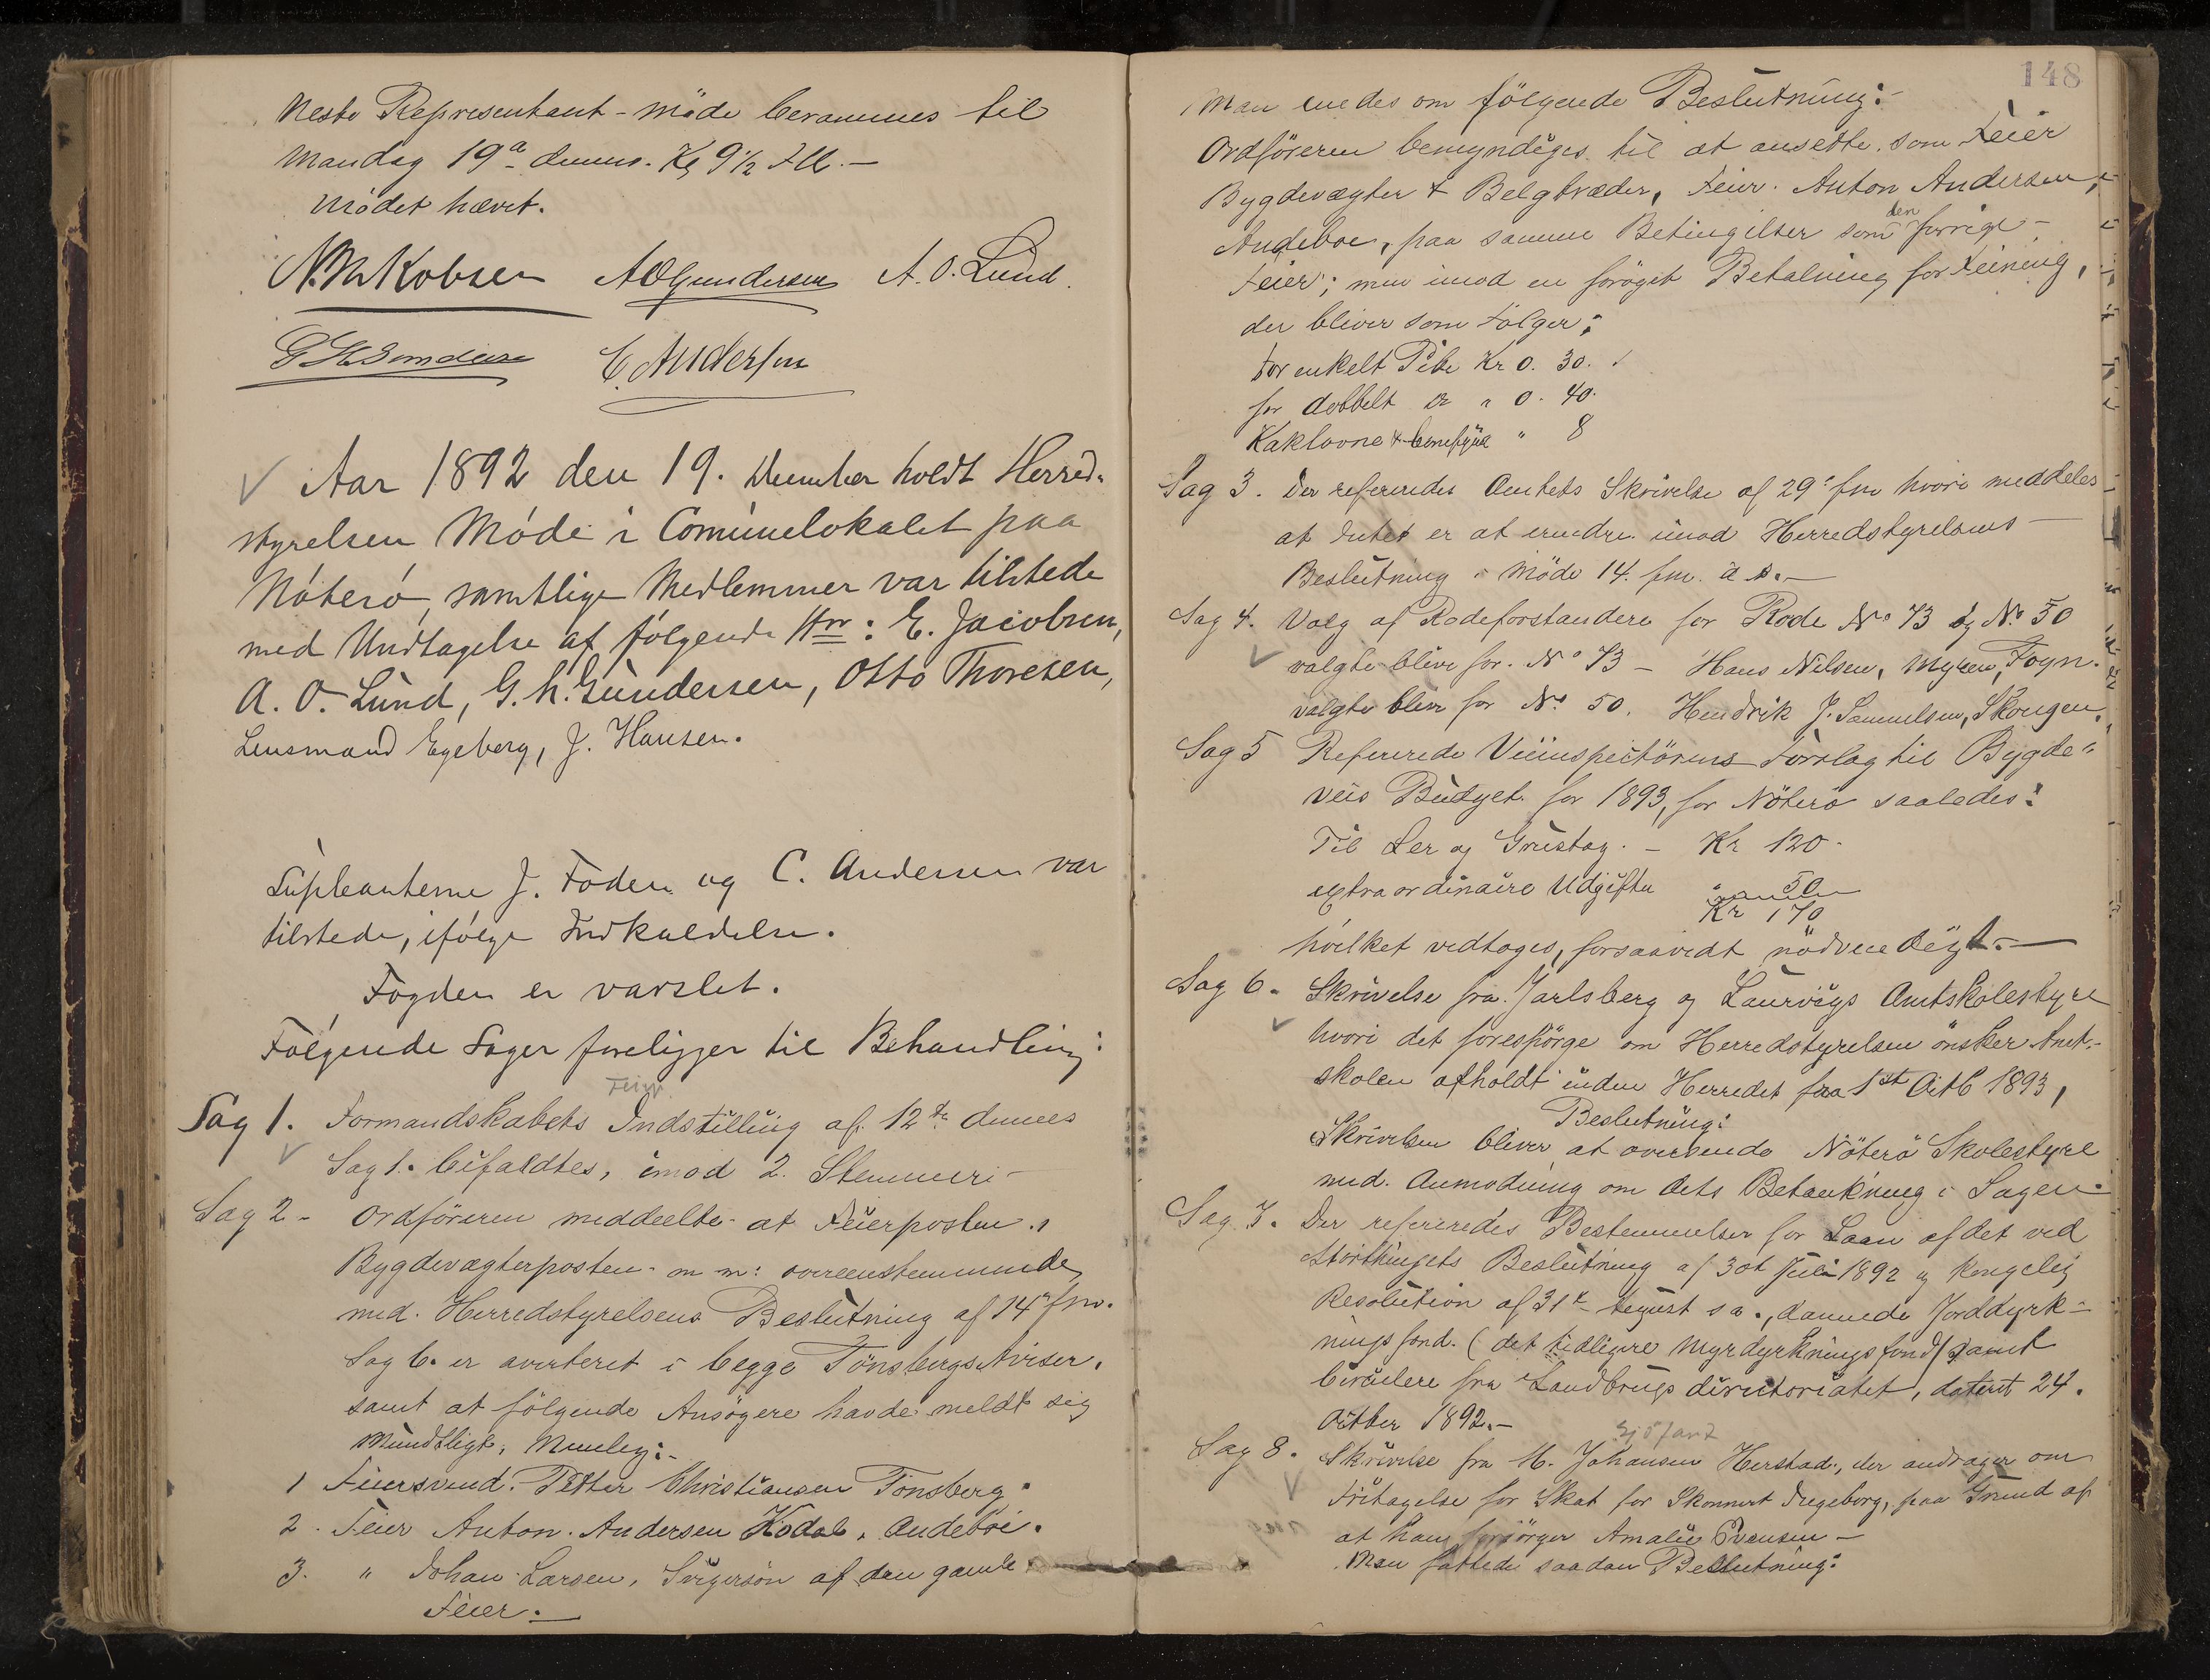 Neste Representant-möde berammes til
Mandag 19de dennes. Kl 9½ FM.-
Mödet hævet.
N. Jakobsen A O Gundersen A. O. Lund.
C. Anderson
Aar 1892 den 19. December holdt Herred-
styrelsen Möde i Comünelokalet paa
Nöterö, samtlige Medlemmer var tilstede
med Undtagelse af følgende Hrr: E. Jacobsen,
A. O. Lund, G. h. Gundersen, Otto Thoresen,
Lensmand Egeberg, J. Hansen.
Supleanterne J. Foden og C. Andersen var
tilstede, ifölge Indkaldelse.
Fogden er varslet.
Følgende Sager foreligger til Behandling:
Feier
Sag 1. Formandskabets Indstilling af 12te dennes
Sag 1. bifaldtes, imod 2. Stemmer.-
Sag 2 - Ordföreren meddeelte at Feierposten,
Bygdevægterposten m m: overeenstemmende
med. Herredstyrelsens Beslutning af 14de fm.
Sag 6. er averteret i begge Tönsbergs Aviser,
samt at fölgende Ansögere havde meldt sig
Mundtligt, Nemlig:-
1 Feiersvend. Petter Christiansen Tönsberg.
2. Feier Anton. Andersen Kodal, Andeboe.
3. " Johan Larsen, Svigersön af den gamle
Feier.-
148
Man enedes om fölgende Beslutning:-
Ordföreren bemyndiges til at ansette som Feier
Bygdevægter & Belgtræder, Feier. Anton Andersen,
Andeboe, paa samme Betingelser som den forrige
Feier; men imod en foröget Betalning for Feining,
der bliver som Fölger:
For enkelt Pibe Kr 0. 30.
for dobbelt do " 0. 40.
Kaklovne & " 8
Sag 3. Der refereredes Amtets Skrivelse af 29de fm hvori meddeles
at Intet er at erindre imod Herredstyrelsens
Beslutning i Möde 14. fm. a s.-
Sag 4. Valg af Rodeforstandere for Rode No 73 og No 50
valgte blive for No 73 - Hans Nilsen, Myren, Föyn.
valgte blive for No 50. Hendrik J. Samuelsen, Skougen.
Sag 5 Refererede Veiinspectörens Forslag til Bygde-
veis Budget for 1893, for Nöterö saaledes:
Til Ler og Grustag. - Kr 120.
extraordinaire Udgifter " 50
Kr 170
hvilket vedtoges, forsaavidt nödvendigt.-
Sag 6. Skrivelse fra Jarlsberg og Laurvigs Amtskolestyre
hvori det forespörges om Herredstyrelsen önsker Amt-
skolen afholdt inden Herredet fra 1st Octb 1893,
Beslutning:
Skrivelsen bliver at oversende Nöterö Skolestyre
med. Anmodning om dets Betænkning i Sagen.
Sag 7. Der refereredes Bestemmelser for Laan af det ved
Storthingets Beslutning af 30t Juli 1892 og kongelig
Resolution af 31te August s a., dannede Jorddyrk-
ningsfond. (det tidligere Myrdyrkningsfond) samt
Circulere fra Landbrugsdirectoriatet, dateret 24.
Octber 1892.-
Sjöfart
Sag 8. Skrivelse fra M. Johansen Herstad, der andrager om
Fritagelse for Skat for Skonnert Ingeborg, paa Grund af
at han forsörger Amalie Evensen -
Man fattede saadan Beslutning: